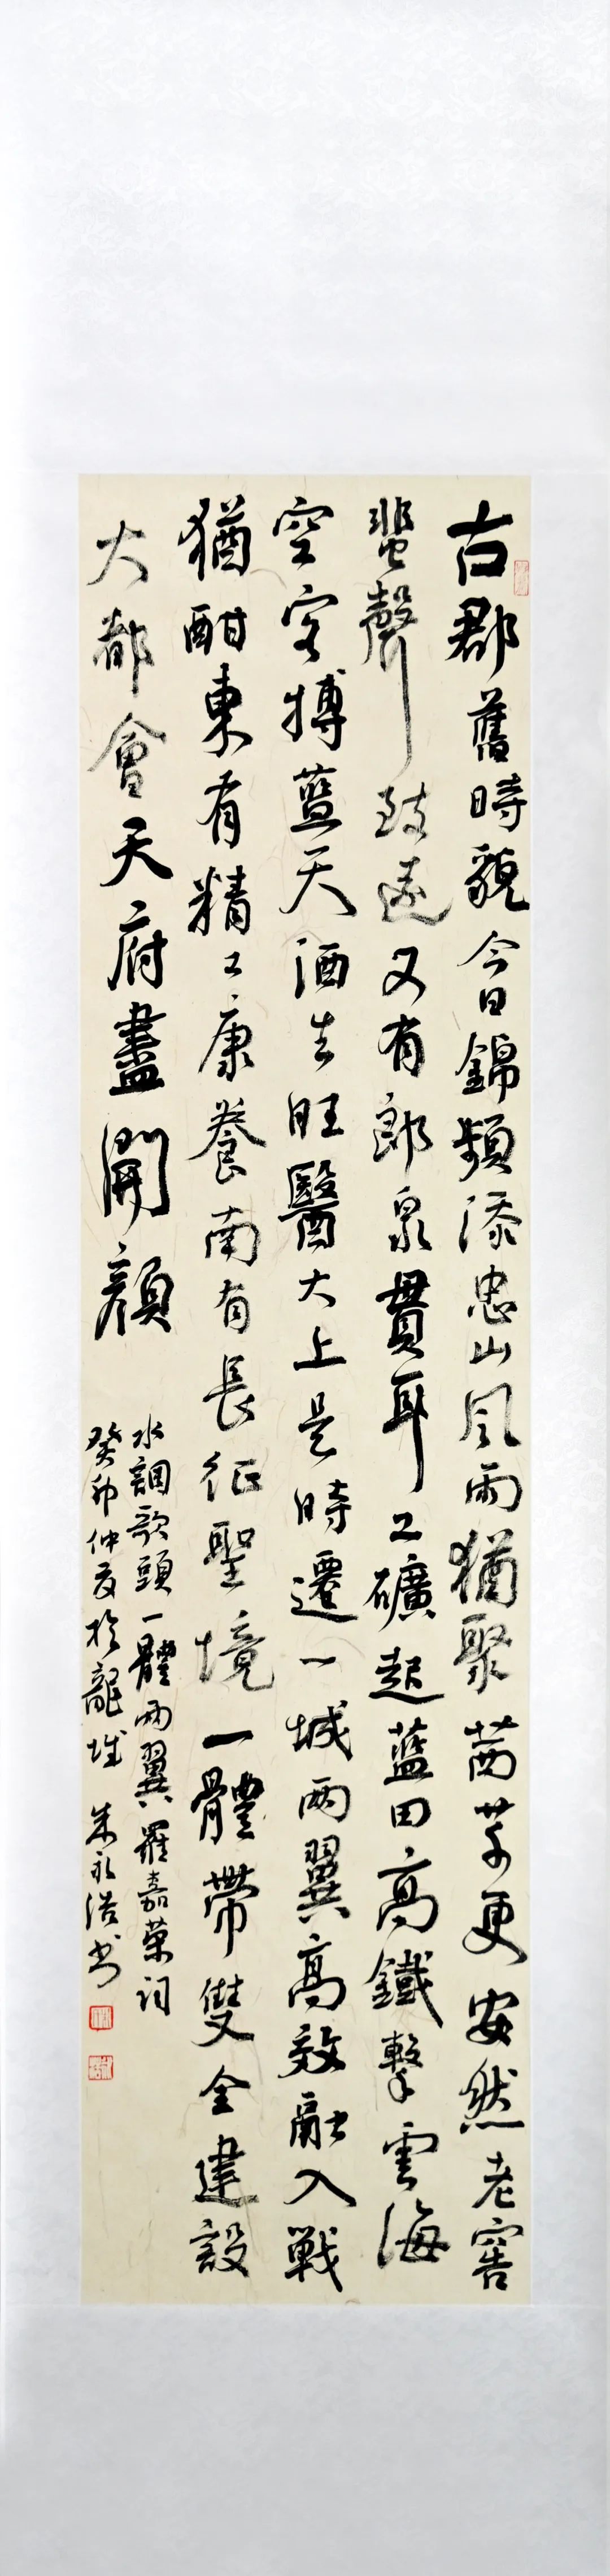 古郡舊時貌今日錦頻添忠山風雨猶聚茜草更安然老窖
蜚聲致遠又有郎泉貫耳工礦起藍田高鐵擊雲海
空客搏藍天酒業旺醫大上是時遷一城兩翼高效融入戰
猶酣東有精工康養南有長征聖境一體帶雙全建設
大都會天府盡開顏
水調歌頭一體兩翼羅嘉榮詞
癸卯仲夏於龍城朱永浩书